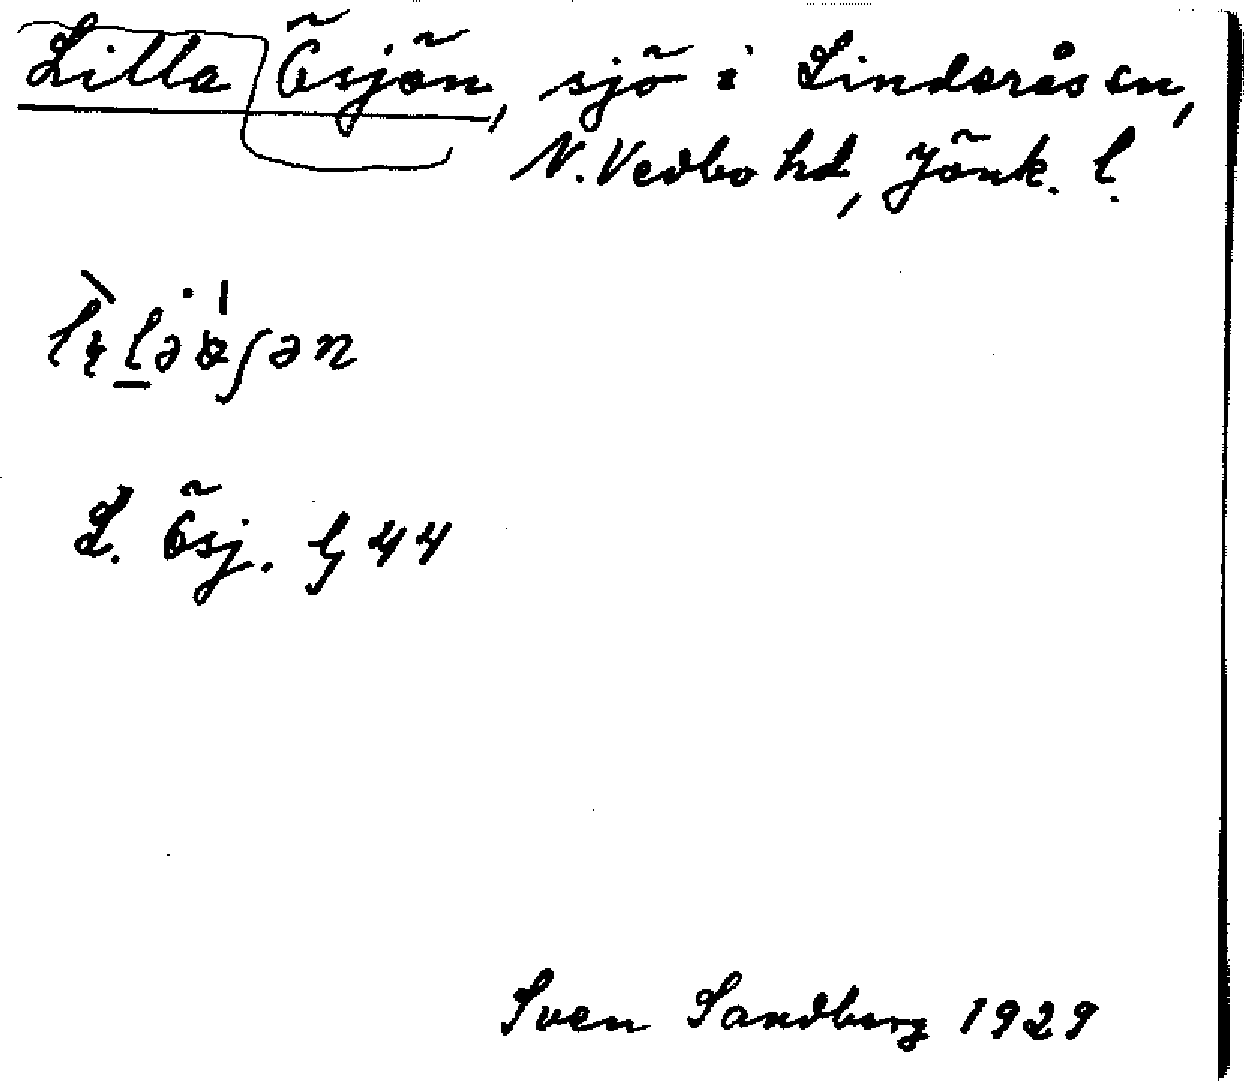 Lilla Ösjön, sjö i Linderås sn,
N. Vedbo hd, Jönk. l.
L. Ösj. G 44
Sven Sandberg 1929